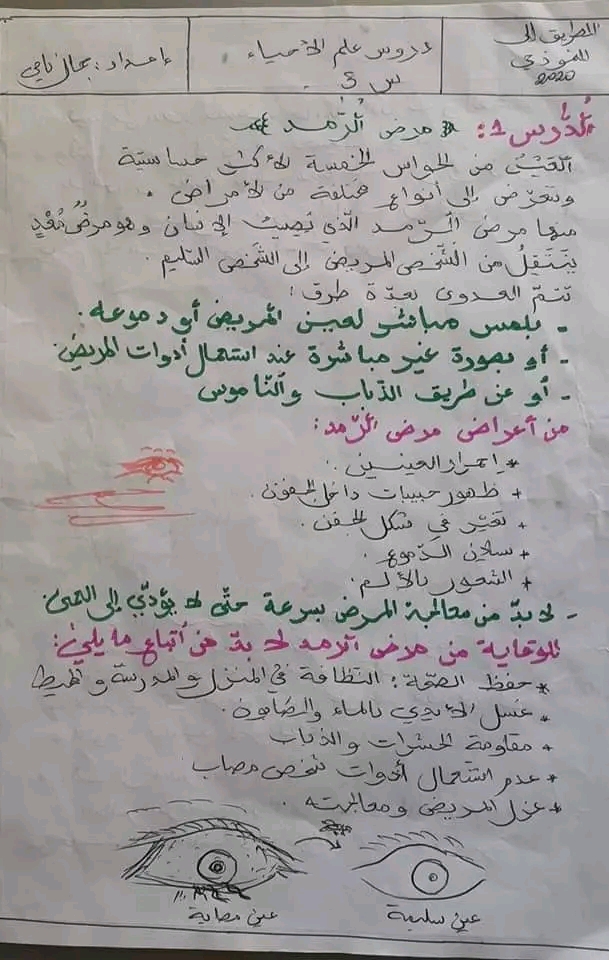 الطريق إلى
النموذجي
2020
دروس علم الأحياء
س 5
إعداد: جمال ناجي
الدّرس 1: مرض الرّمد
العين من الحواس الخمسة الأكثر حساسية
وتتعرّض إلى أنواع مختلفة من الأمراض.
منها مرض الرّمد الّذي يُصيبُ الإنسان وهو مرضٌ مُعْدٍ
يَنْتَقِلُ من الشّخص المريض إلى الشّخص السّليم.
تتمّ العدوى بعدّة طرق:
- بلمس مباشر لعين المريض أو دموعه.
- أو بصورة غير مباشرة عند استعمال أدوات المريض
- أو عن طريق الذباب والنّاموس
من أعراض مرض الرّمد:
* إحمرار العينين.
+ ظهور حبيبات داخل الجفون.
+ تغيّر في شكل الجفن.
+ سيلان الدّموع.
+ الشعور بالألم.
- لا بدّ من معالجة المرض بسرعة حتّى لا يؤدّي إلى العمى
للوقاية من مرض الرمد لا بدّ من اتّباع ما يلي:
* حفظ الصّحّة: النّظافة في المنزل والمدرسة والمحيط
* غسل الأيدي بالماء والصّابون.
* مقاومة الحشرات والذباب
* عدم استعمال أدوات شخص مصاب
* عزل المريض ومعالجته.
عين سليمة
عين مصابة